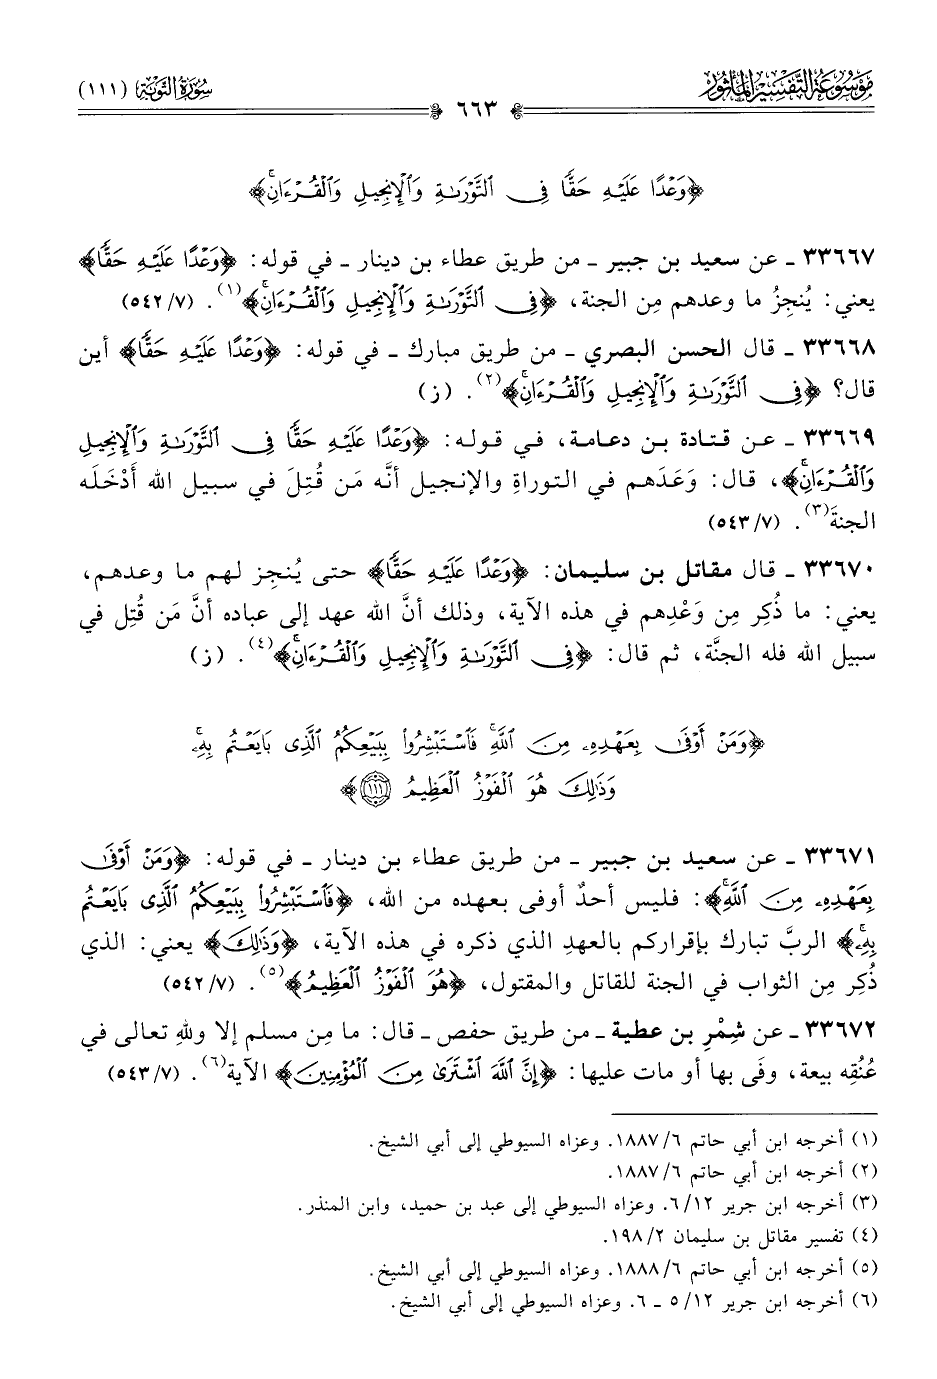 مَوْسُوعَةُ التَّفْسِيرِ المَأْثُورِ
سُورَةُ التَّوْبَةِ (١١١)
٦٦٣
﴿وَعْدًا عَلَيْهِ حَقًّا فِى ٱلتَّوْرَىٰةِ وَٱلْإِنجِيلِ وَٱلْقُرْءَانِۚ﴾
٣٣٦٦٧ ـ عن سعيد بن جبير ـ من طريق عطاء بن دينار ـ في قوله: ﴿وَعْدًا عَلَيْهِ حَقًّا﴾
يعني: يُنجِزُ ما وعدهم مِن الجنة، ﴿فِى ٱلتَّوْرَىٰةِ وَٱلْإِنجِيلِ وَٱلْقُرْءَانِۚ﴾(١). (٧/ ٥٤٢)
٣٣٦٦٨ ـ قال الحسن البصري ـ من طريق مبارك ـ في قوله: ﴿وَعْدًا عَلَيْهِ حَقًّا﴾ أين
قال؟ ﴿فِى ٱلتَّوْرَىٰةِ وَٱلْإِنجِيلِ وَٱلْقُرْءَانِۚ﴾(٢). (ز)
٣٣٦٦٩ ـ عن قتادة بن دعامة، في قوله: ﴿وَعْدًا عَلَيْهِ حَقًّا فِى ٱلتَّوْرَىٰةِ وَٱلْإِنجِيلِ
وَٱلْقُرْءَانِۚ﴾، قال: وَعَدَهم في التوراةِ والإنجيل أنَّه مَن قُتِلَ في سبيل الله أَدْخَلَه
الجنةَ(٣). (٧/ ٥٤٣)
٣٣٦٧٠ ـ قال مقاتل بن سليمان: ﴿وَعْدًا عَلَيْهِ حَقًّا﴾ حتى يُنجِز لهم ما وعدهم،
يعني: ما ذُكِر مِن وَعْدِهم في هذه الآية، وذلك أنَّ الله عهد إلى عباده أنَّ مَن قُتِل في
سبيل الله فله الجنَّة، ثم قال: ﴿فِى ٱلتَّوْرَىٰةِ وَٱلْإِنجِيلِ وَٱلْقُرْءَانِۚ﴾(٤). (ز)
﴿وَمَنْ أَوْفَىٰ بِعَهْدِهِۦ مِنَ ٱللَّهِۚ فَٱسْتَبْشِرُوا۟ بِبَيْعِكُمُ ٱلَّذِى بَايَعْتُم بِهِۦۚ
وَذَٰلِكَ هُوَ ٱلْفَوْزُ ٱلْعَظِيمُ ١١١﴾
٣٣٦٧١ ـ عن سعيد بن جبير ـ من طريق عطاء بن دينار ـ في قوله: ﴿وَمَنْ أَوْفَىٰ
بِعَهْدِهِۦ مِنَ ٱللَّهِۚ﴾: فليس أحدٌ أوفى بعهده من الله، ﴿فَٱسْتَبْشِرُوا۟ بِبَيْعِكُمُ ٱلَّذِى بَايَعْتُم
بِهِۦۚ﴾ الربَّ تبارك بإقراركم بالعهدِ الذي ذكره في هذه الآية، ﴿وَذَٰلِكَ﴾ يعني: الذي
ذُكِر مِن الثواب في الجنة للقاتل والمقتول، ﴿هُوَ ٱلْفَوْزُ ٱلْعَظِيمُ﴾(٥). (٧/ ٥٤٢)
٣٣٦٧٢ ـ عن شِمْرِ بن عطية ـ من طريق حفص ـ قال: ما مِن مسلم إلا وللهِ تعالى في
عُنُقِه بيعة، وفَى بها أو مات عليها: ﴿إِنَّ ٱللَّهَ ٱشْتَرَىٰ مِنَ ٱلْمُؤْمِنِينَ﴾ الآية(٦). (٧/ ٥٤٣)
(١) أخرجه ابن أبي حاتم ٦/ ١٨٨٧. وعزاه السيوطي إلى أبي الشيخ.
(٢) أخرجه ابن أبي حاتم ٦/ ١٨٨٧.
(٣) أخرجه ابن جرير ١٢/ ٦. وعزاه السيوطي إلى عبد بن حميد، وابن المنذر.
(٤) تفسير مقاتل بن سليمان ٢/ ١٩٨.
(٥) أخرجه ابن أبي حاتم ٦/ ١٨٨٨. وعزاه السيوطي إلى أبي الشيخ.
(٦) أخرجه ابن جرير ١٢/ ٥ ـ ٦. وعزاه السيوطي إلى أبي الشيخ.